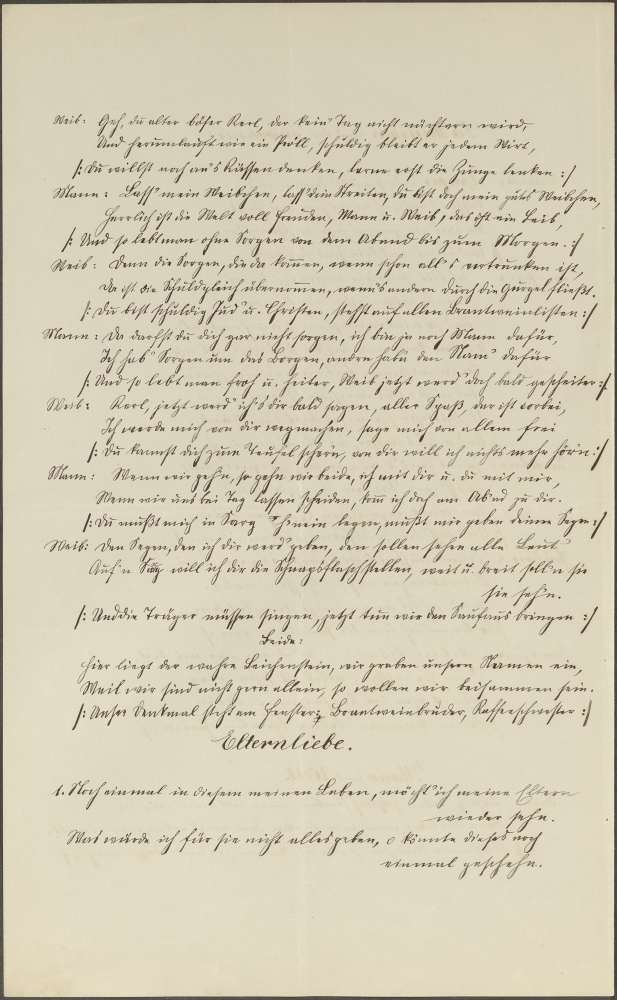 Weib: Geh, du alter böser Kerl, der kein' Tag nicht nüchtern wird,
Und herumlauft wie ein Pröll, schuldig bleibt er jedem Wirt,
/: Du willst noch an's Küssen denken, lerne erst die Zunge lenken :/
Mann: Lass' mein Weibchen, lass' dein Streiten, du bist doch mein gutes Weibchen,
Herrlich ist die Welt voll Freuden, Mann u. Weib, das ist ein Leib,
/: Und so lebt man ohne Sorgen von dem Abend bis zum Morgen. :/
Weib: Denn die Sorgen, die da kommen, wenn schon all's vertrunken ist,
Da ist die Schuld gleich übernommen, wenn's andern durch die Gurgel fließt.
/: Du bist schuldig Jud' u. Christen, stehst auf allen Brantweinlisten :/
Mann: Da darfst du dich gar nicht sorgen, ich bin ja noch Mann dafür,
Ich hab' Sorgen um das Borgen, andre habn den Nam' dafür
/: Und so lebt man froh u. heiter, Weib jetzt werd' doch bald gescheiter :/
Weib: Kerl, jetzt werd' ich's dir bald sagen, aller Spaß, der ist vorbei,
Ich werde mich von dir wegmachen, sage mich von allem frei
/: Du kannst dich zum Teufel scher'n, von dir will ich nichts mehr hör'n :/
Mann: Wenn wir geh'n, so gehn wir beide, ich mit dir u. du mit mir,
Wenn wir uns bei Tag lassen scheiden, komm ich doch am Ab'nd zu dir.
/: Du mußt mich in Sarg h'nein legen, mußt mir geben deinen Segen :/
Weib: Den Segen, den ich dir werd' geben, den sollen sehen alle Leut'
Auf'n Sarg will ich dir die Schnapsflasch stellen, weit u. breit soll'n sie
sie seh'n.
/: Und die Träger müssen singen, jetzt tun wir den Saufaus bringen :/
Beide:
Hier liegt der wahre Leichenstein, wir graben unsern Namen ein,
Weil wir sind nicht gern allein, so wollen wir beisammen sein.
/: Unser Denkmal steht am Fenster: Brantweinbruder, Kaffeeschwester :/
Elternliebe.
1. Noch einmal in diesem meinen Leben, möcht' ich meine Eltern
wieder sehn.
Was würde ich für sie nicht alles geben, o könnte dieses noch
einmal geschehn.